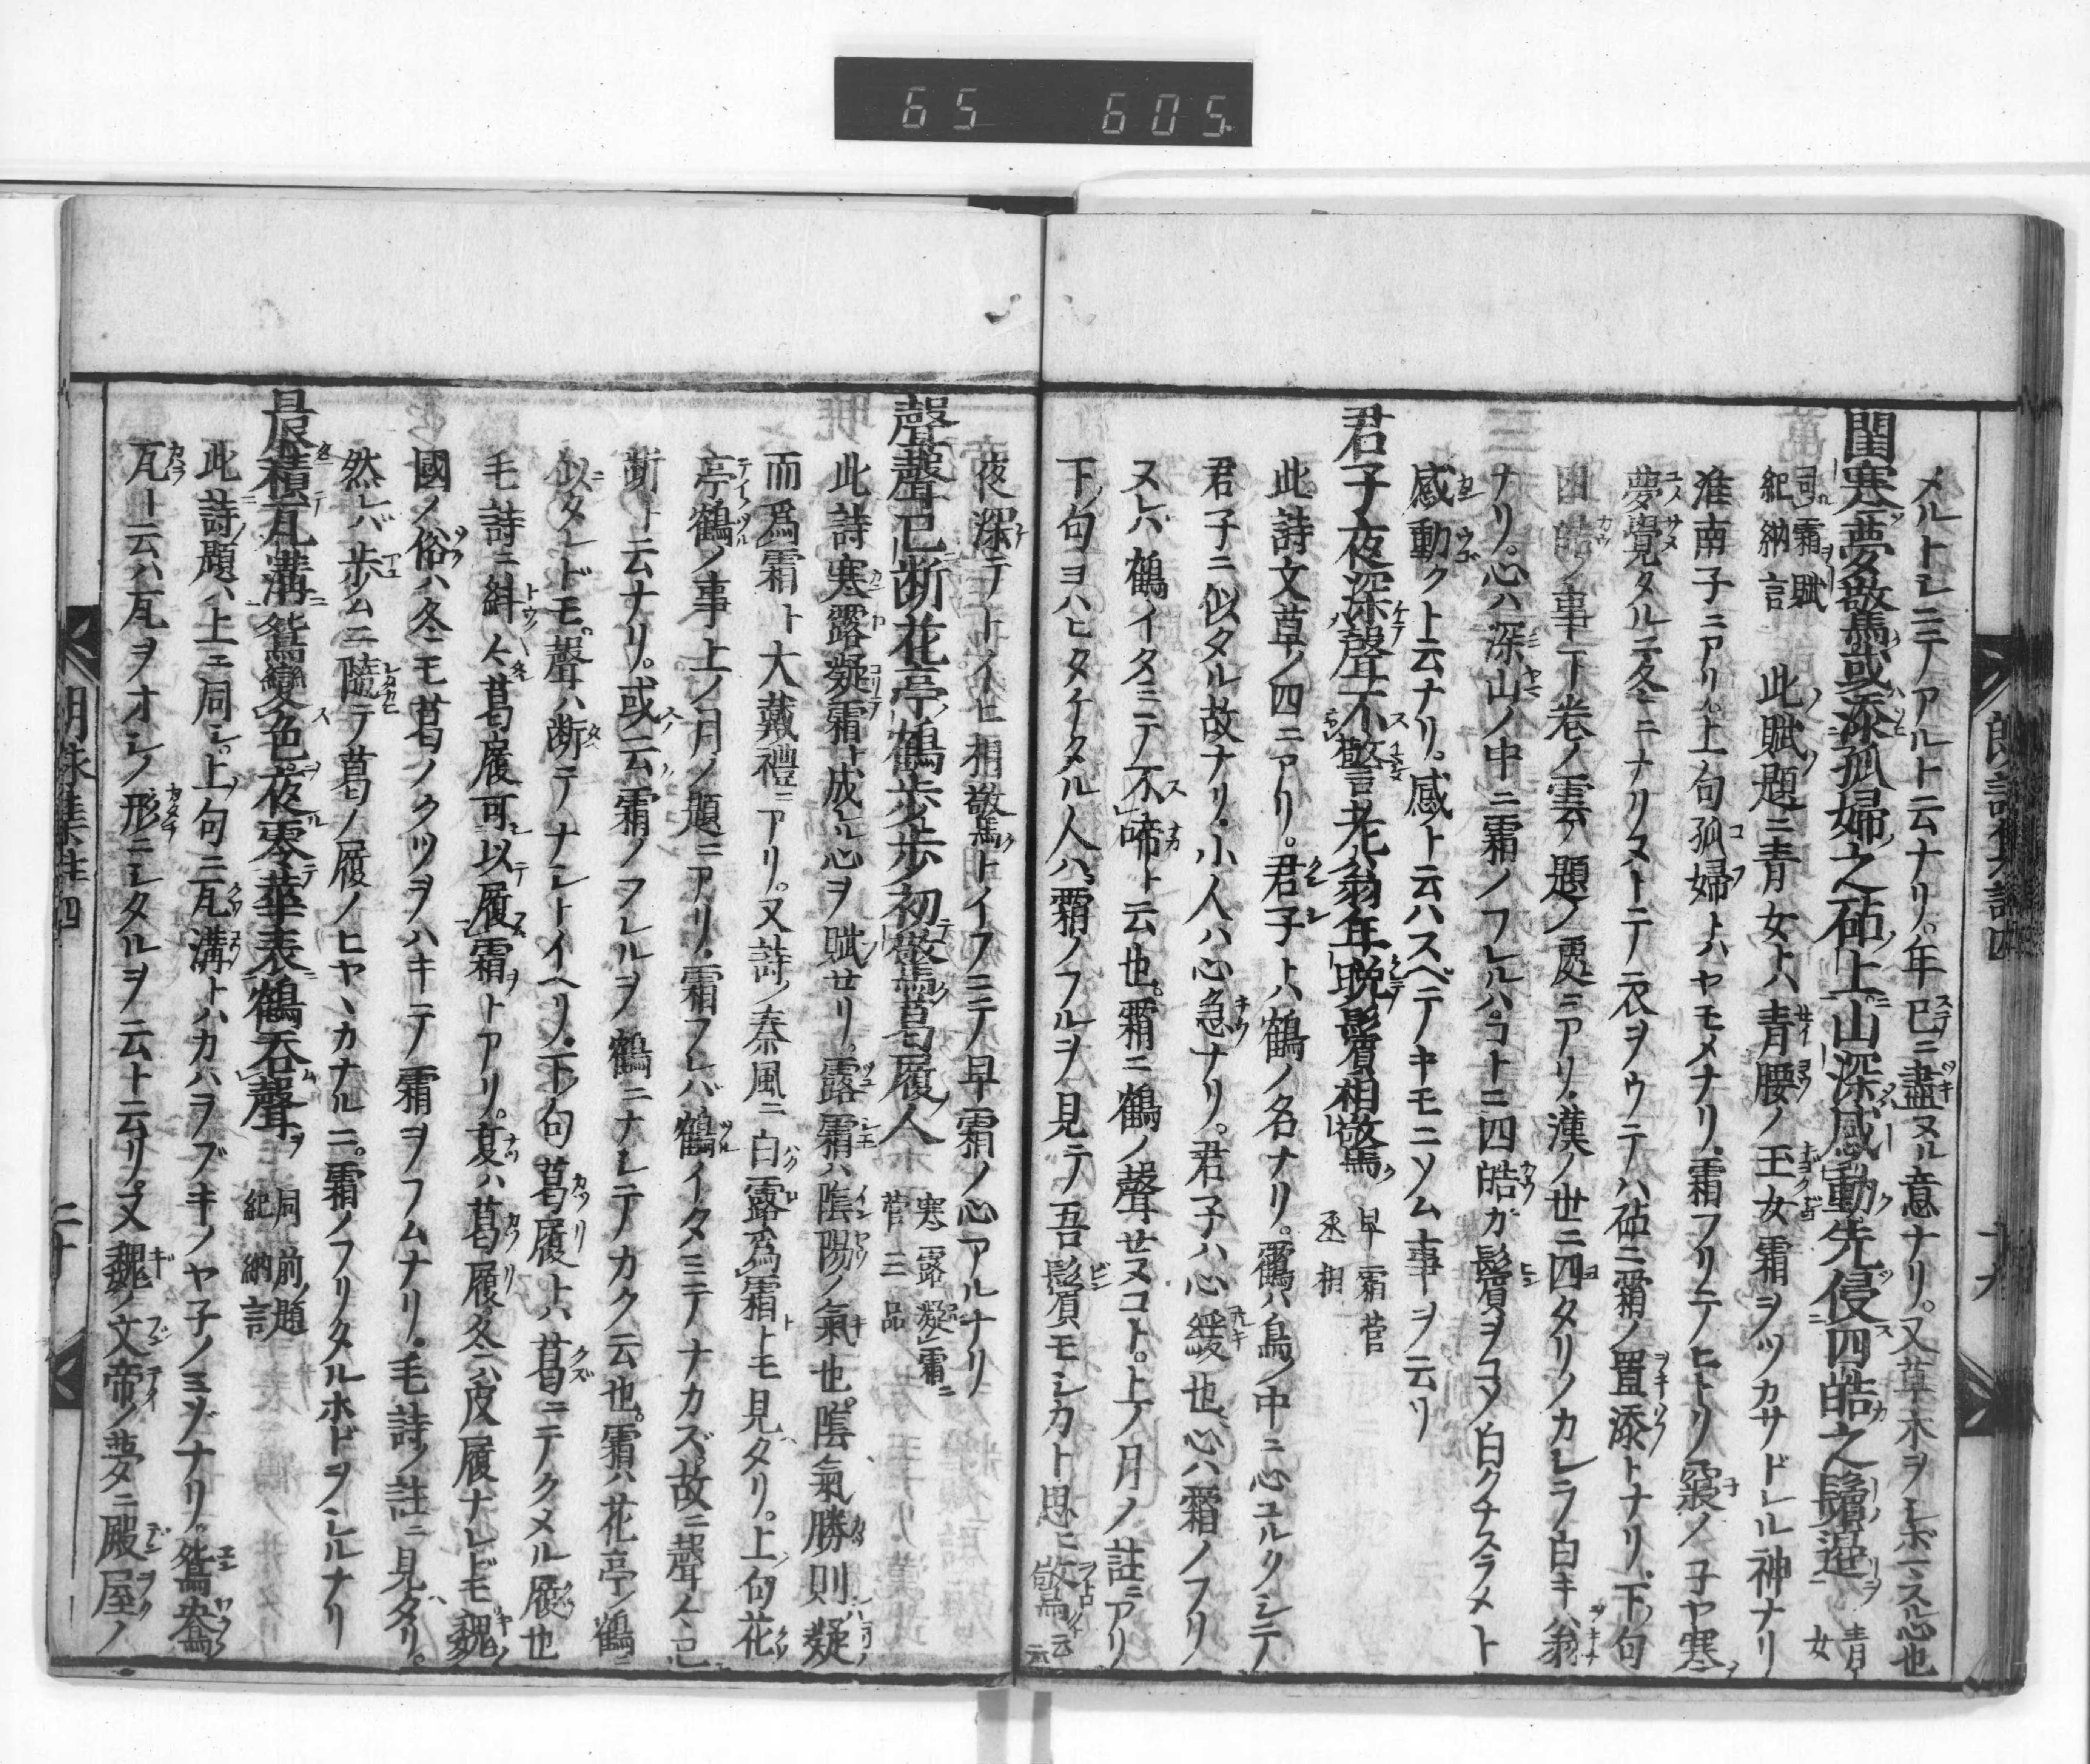 65 605
メルトシニテノアルト云ナリ。年已ニ盡ヌル意ナリ。又草木ヲシボマスル心也
閨寒夢驚或添孤婦之砧上山深感動先侵四皓之鬢邊 青女
司霜賦 紀納言 此賦ノ題ニ青女トハ青腰ノ玉女霜ヲツカサドレル神ナリ
淮南子ニアリ。上句孤婦トハヤモメナリ。霜フリテノヒトリノ寝ノ子ヤ寒
夢覺タルニ冬ニナリヌトテ衣ヲウテハ砧ニ霜ノ置添トナリ。下句
四皓ノ事下巻ノ雲ノ題ノ處ニアリ。漢ノ世ニ四タリノカシラ白キ翁
ナリ。心ハ深山ノ中ニ霜ノフレルハコトニ四皓ガ鬢ヲコソ白クチスラメト
感動クト云ナリ。感ト云ハスベテノキモニソム事ヲ云リ
君子夜深聲不警老翁年晩鬢相驚 早霜菅丞相
此詩文草ノ四ニアリ。君子トハ鶴ノ名ナリ。鶴ハ鳥ノ中ニ心ユルクシテ
君子ニ似タル故ナリ。小人ハ心急ナリ。君子ハ心緩也。心ハ霜ノフリ
ヌレバ鶴イタミテ不啼ト云也。霜ニ鶴ノ聲せヌコト。上ノ月ノ註ニアリ
下ノ句ヨハヒタケタル人ハ。霜ノフルヲ見テ吾鬢モシカト思ヒ驚ト云云
朗詠集註四 十九
夜深テトイヒ相驚トイフニテ早霜ノ心アルナリ
聲聲已断花亭鶴歩歩初驚葛履人 寒露凝霜 菅三品
此詩寒露凝霜ト成ル心ヲ賦せリ。露霜ハ陰陽ノ氣也。陰氣勝則凝
而爲霜ト大戴禮ニアリ。又詩ノ秦風ニ白露為霜トモ見タリ。上句花
亭鶴ノ事上ノ月ノ題ニアリ。霜フレバ鶴イタミテナカズ。故ニ聲々已
断ト云ナリ。或云霜ノフレルヲ鶴ニナシテカク云也。霜ハ花亭ノ鶴ニ
似タレドモ。聲ハ断テナシトイヘリ。下ノ句葛履トハ葛ニテクメル履也
毛詩ニ糾々葛履可以履霜トアリ。夏ハ葛履冬ハ皮履ナレドモ魏
國ノ俗ハ冬ニモ葛ノクツヲハキテ霜ヲフムナリ。毛詩ノ註ニ見タリ。
然レバ歩ムニ隨テ葛ノ履ノヒヤヽカナルニ。霜ノフリタルホドヲシルナリ
晨積瓦溝鴛變色夜零華表鶴呑聲 同前題 紀納言
此詩題ハ上ニ同シ。上ノ句ニ瓦溝トハカハラブキノヤ子ノミゾナリ。鴛鴦
瓦ト云ハ瓦ヲオシノ形ニシタルヲ云ト云リ。又魏ノ文帝ノ夢ニ殿屋ノ
朗詠集註四 二十